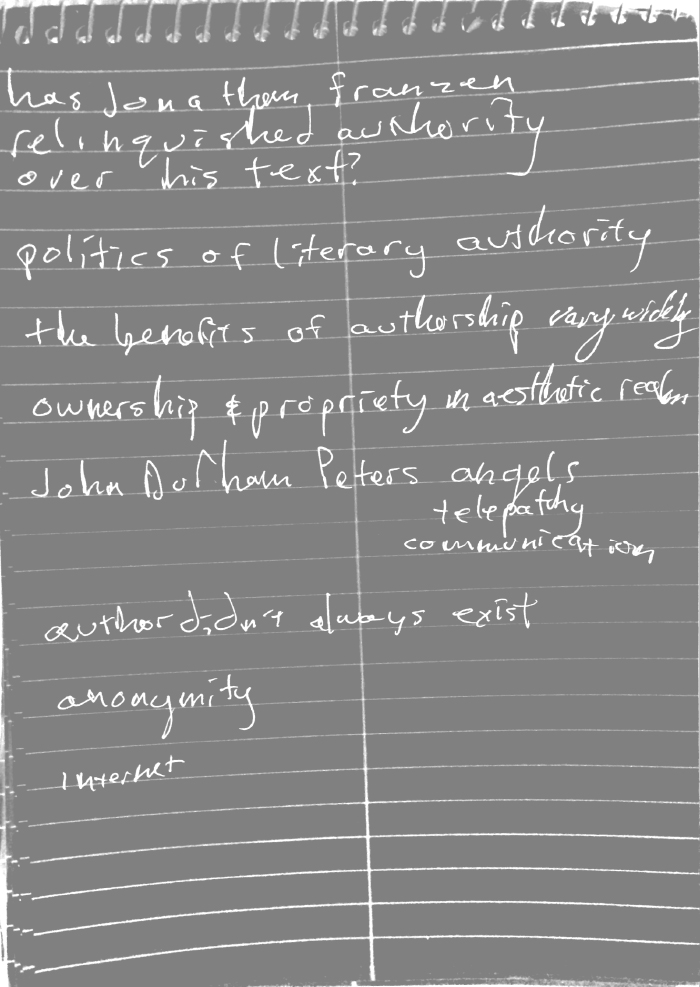 has Jonathan franzen
relinquished authority
over his text?
politics of literary authority
the benefits of authorship vary widely
ownership & propriety in aesthetic realm
John Durham Peters angels
telepathy
communication
author didn't always exist
anonymity
Internet